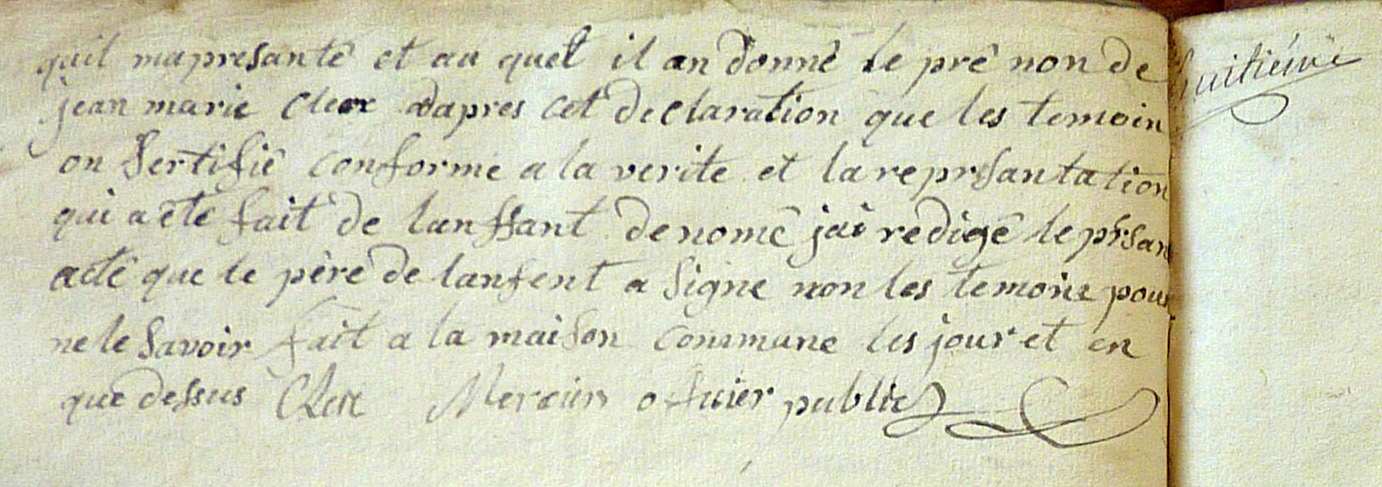 quil mapresantê et au quel il an donnê le prê non de
jean marie Clerc dapres cet declaration que les temoin
on Sertifiê conforme a la verite et la reprsantation
qui a êtê fait de lanffant denomê jai redigê le prsan
actê que le père de lanfent a Signe non les temoins pour
ne le Savoir fait a la maison commune les jour et en
que dessus Clerc Mercier officier public
huitiéme